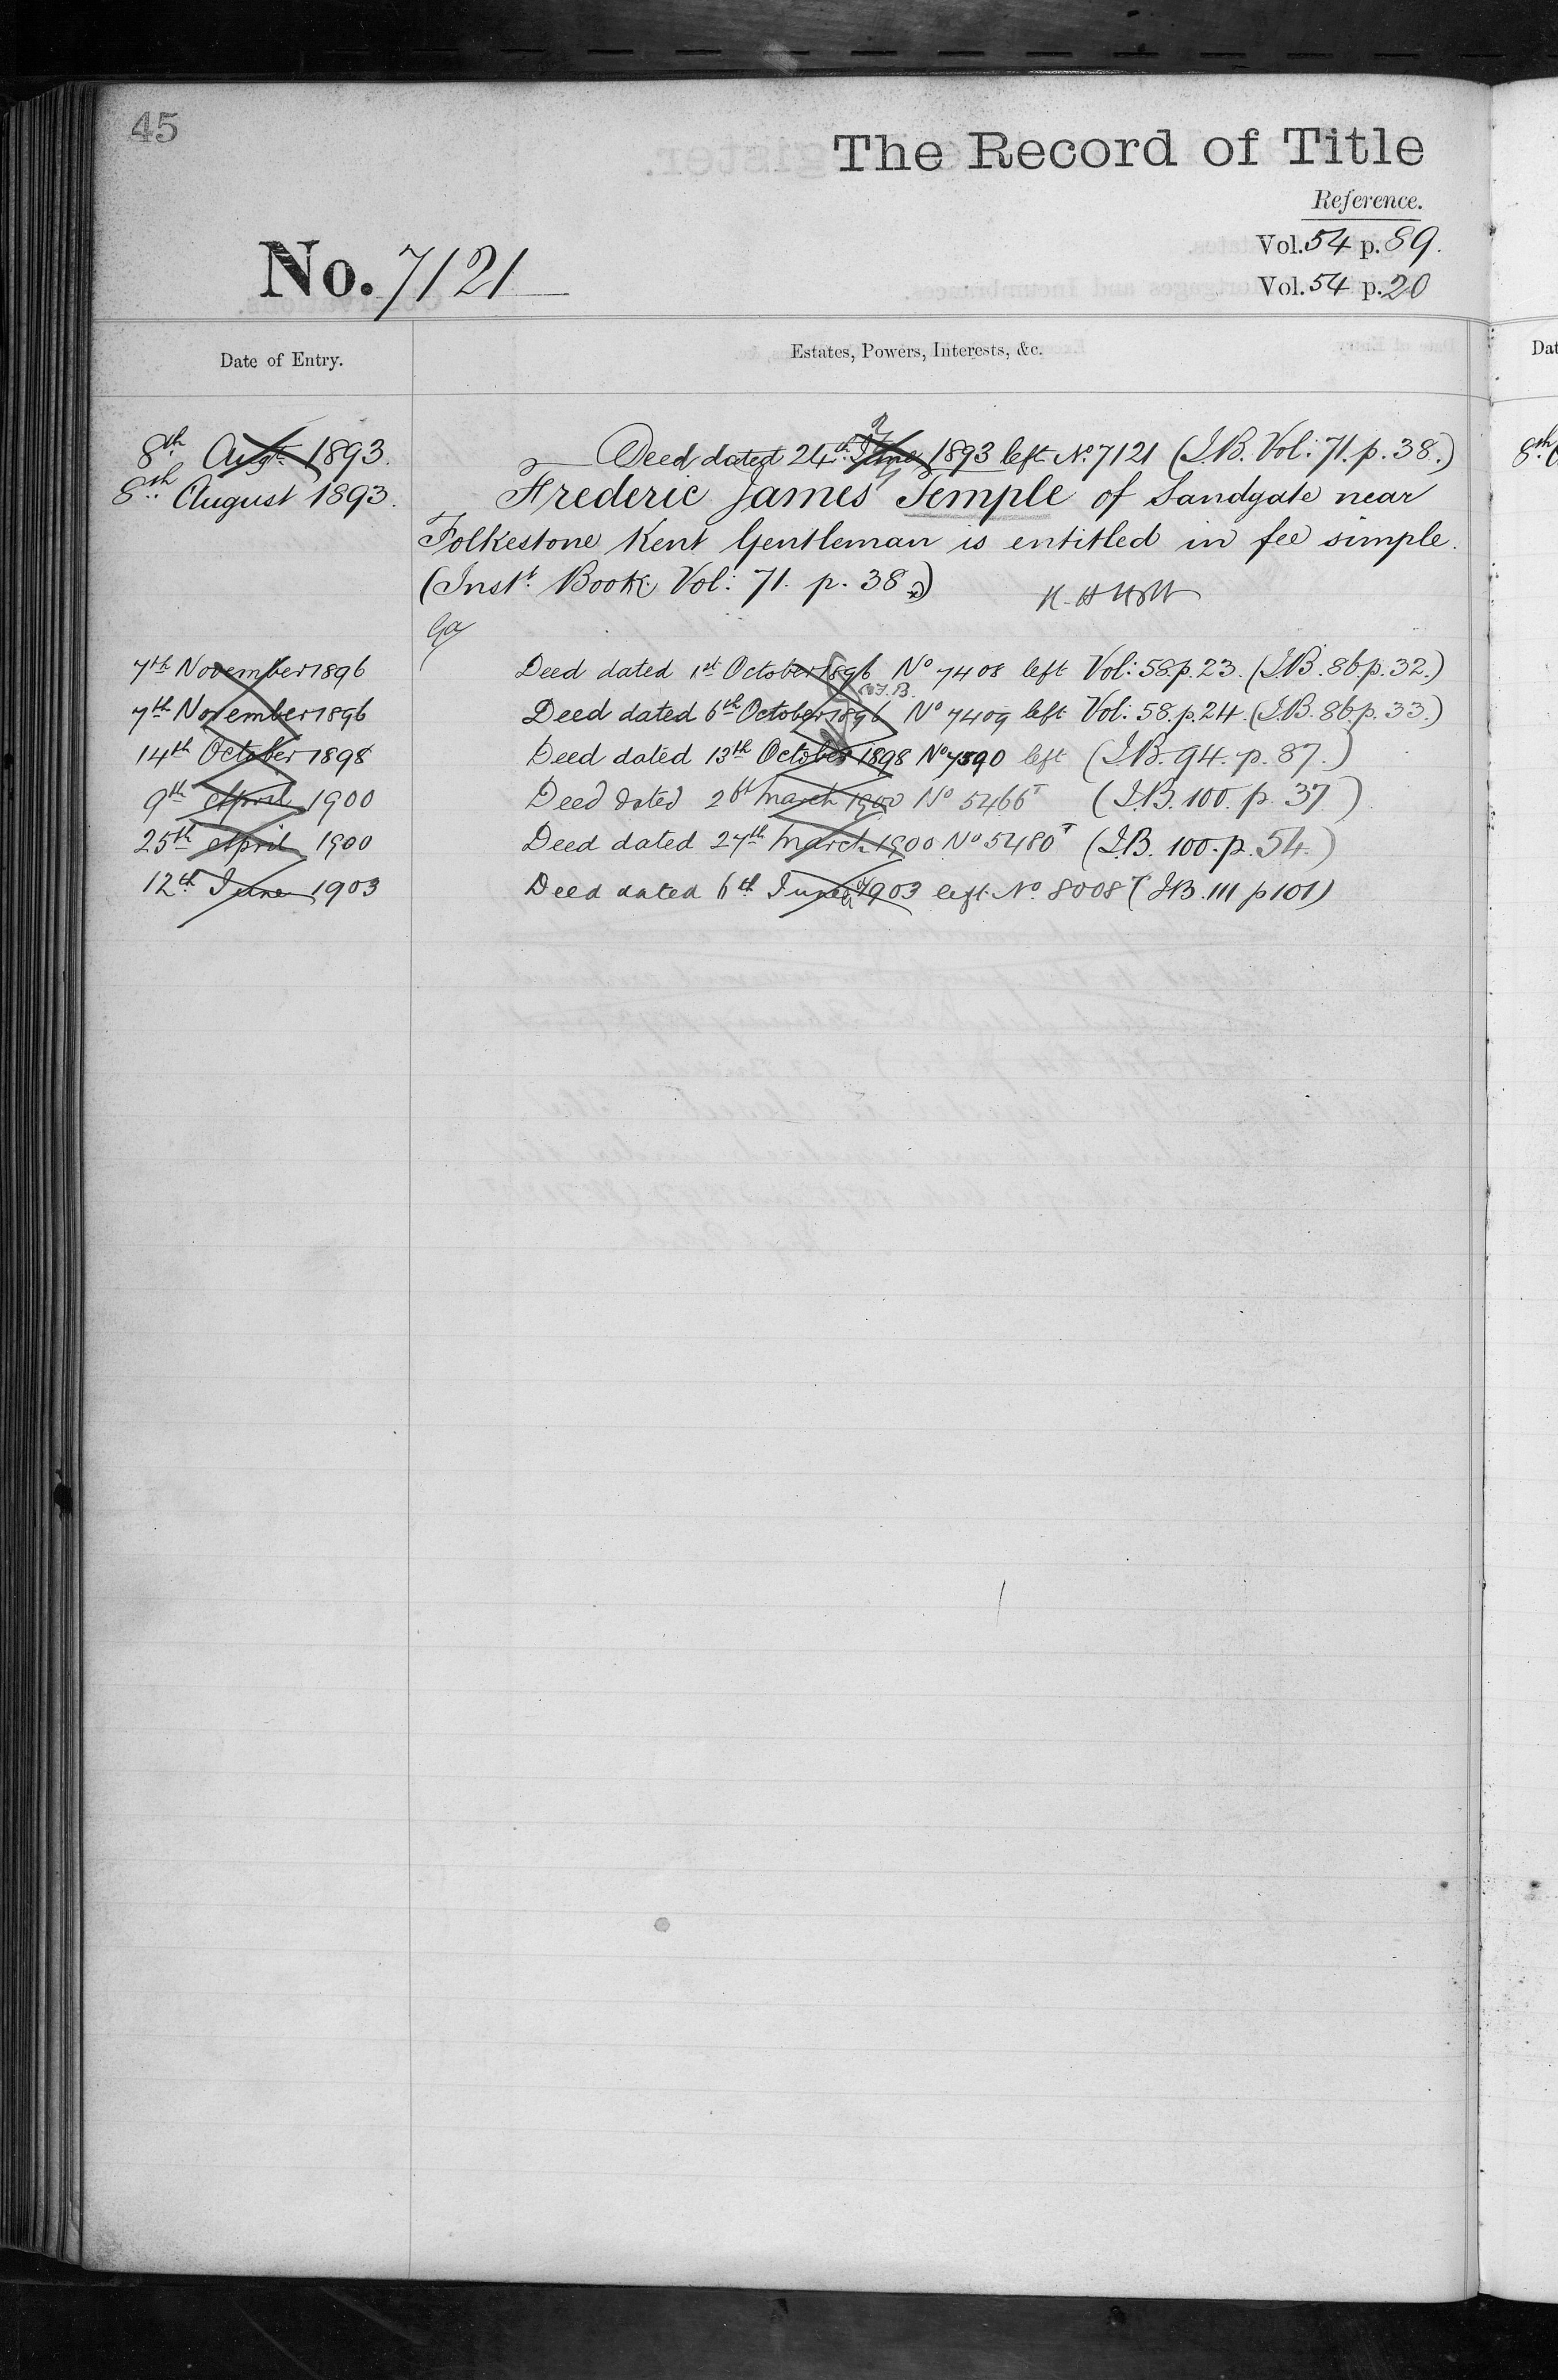 45
The Record of Title
Reference.
Vol. 54 p. 89.
No. 7121
Vol. 54 p. 20
Date of Entry.
Estates, Powers, Interests, &c.
Dat
8th Augt. 1893.
Deed dated 24th June 1893 left No. 7121 (I.B. Vol: 71. p. 38.)
8th
8th August 1893.
Frederic James Temple of Sandgate near
Folkestone Kent Gentleman is entitled in fee simple.
(Inst. Book. Vol: 71. p. 38.)
7th November 1896
Deed dated 1st October 1896 No 7408 left Vol: 58. p. 23. (I.B. 86 p. 32.)
7th November 1896
Deed dated 6th October 1896 No 7409 left Vol: 58. p. 24. (I.B. 86 p. 33.)
14th October 1898
Deed dated 13th October 1898 No 7590 left (I.B. 94. p. 87.)
9th April 1900
Deed dated 26t March 1900 No 5466T (I.B. 100. p. 37)
25th April 1900
Deed dated 27th March 1900 No 5480T (I.B. 100. p. 54.)
12th June 1903
Deed dated 6th June 1903 left No. 8008T (I.B. 111 p 101)